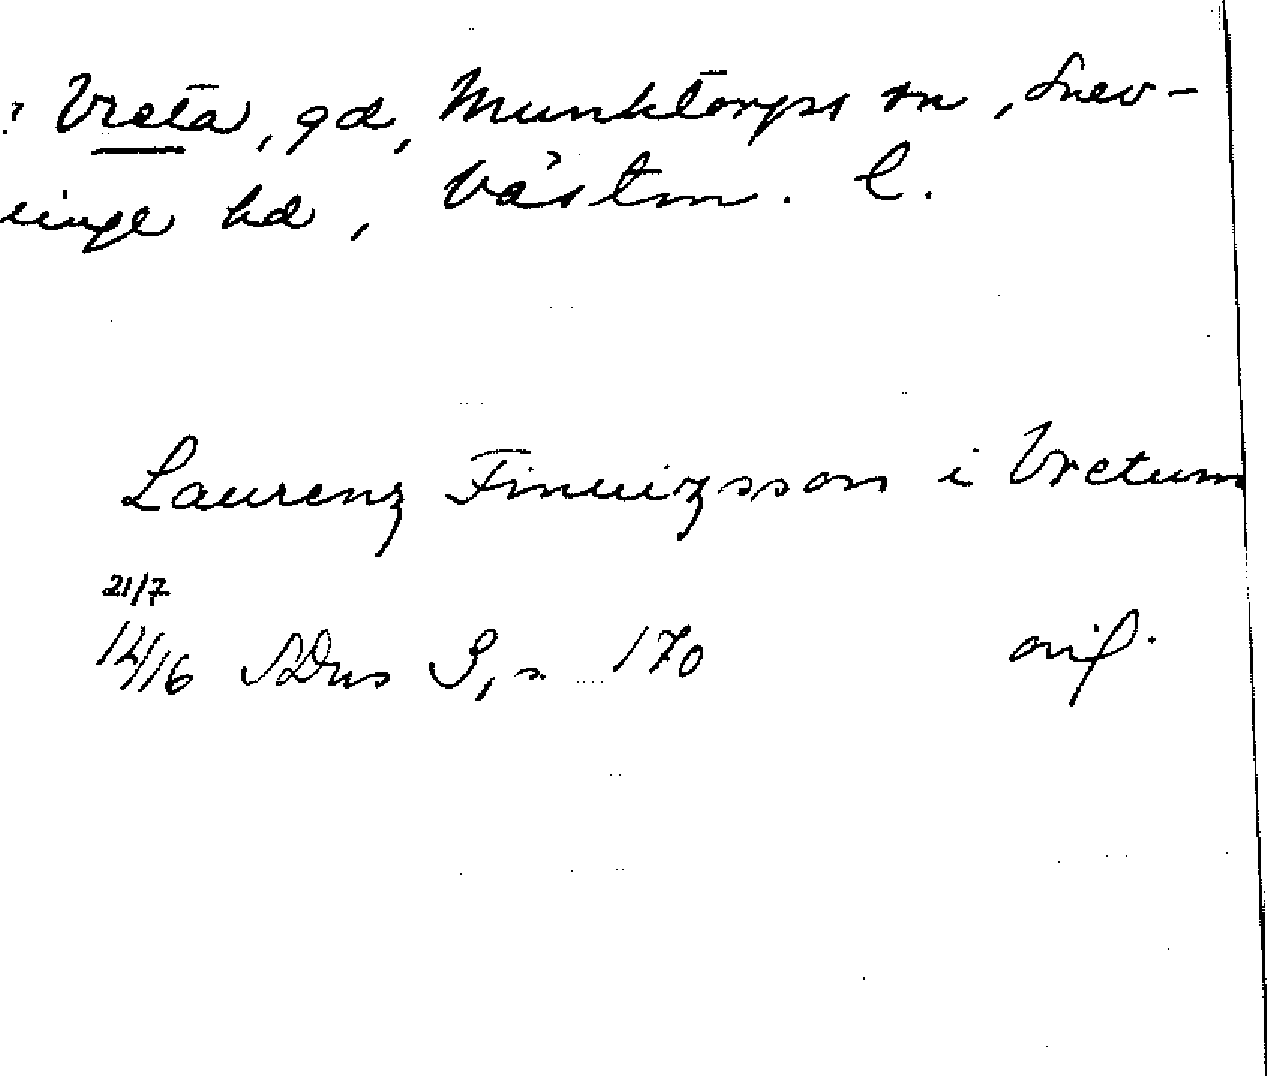 : Vreta, gd, Munktorps sn, Snev-
ringe hd, Västm. l.
Laurenz Finuizsson i Vretum
21/7
1416 SDns 3, s. 170 orig.